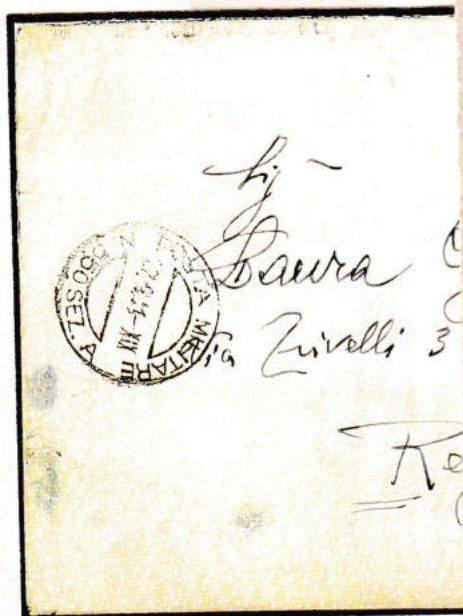 Sig
Laura
Via Zivelli 3
Re
POSTA MILITARE N 3550 SEZ. A